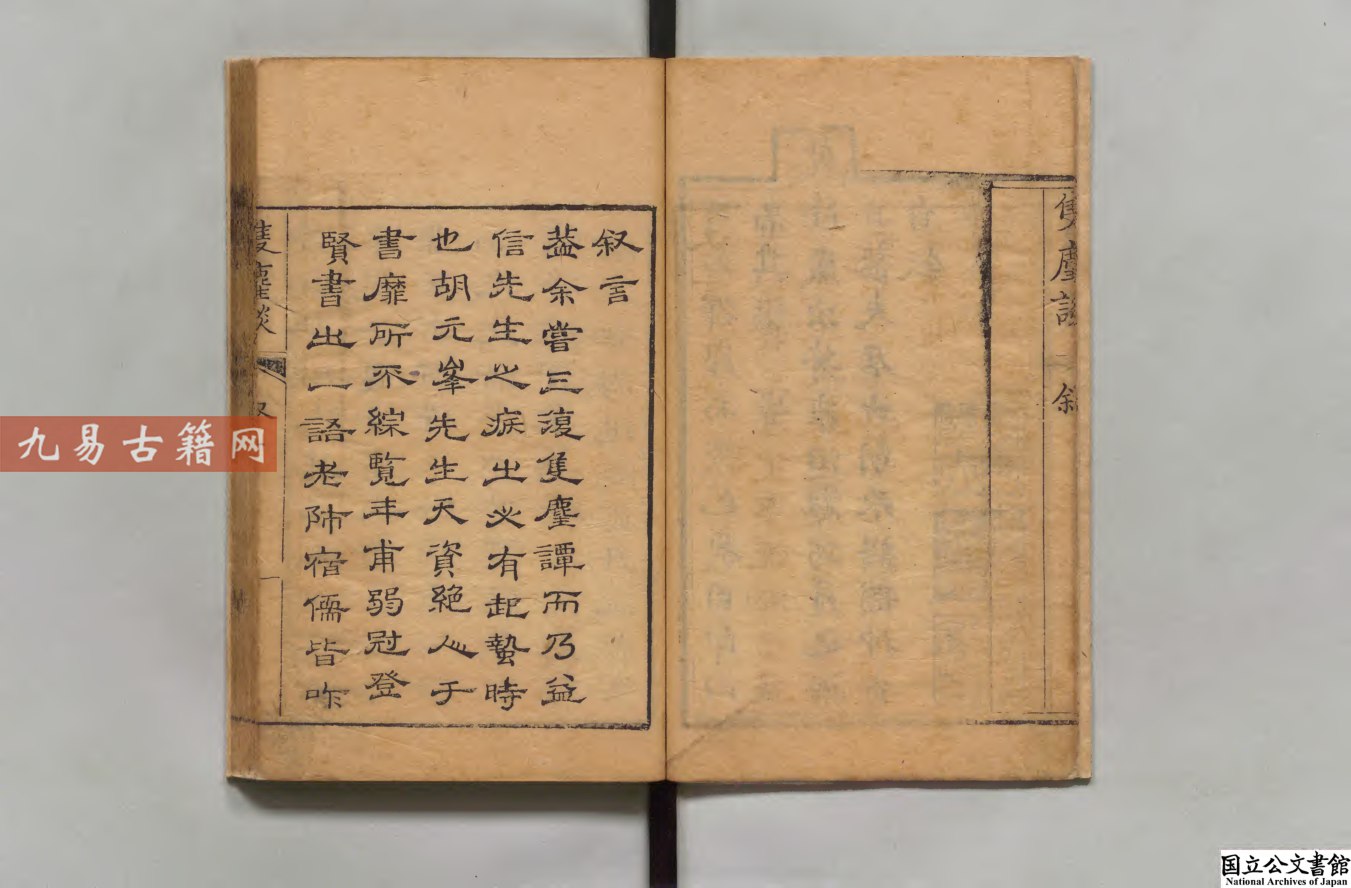 隻麈談 敘
叙言
葢余嘗三復隻麈譚而乃益
信先生之疾出必有起蟄時
也胡元峯先生天資絶人于
書靡所不綜覽年甫弱冠登
賢書出一語老師宿儒皆咋
隻麈談
九易古籍网
国立公文書館
National Archives of Japan